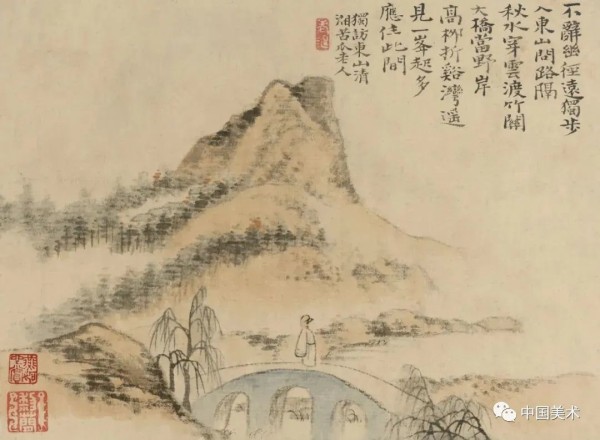 不辭幽徑遠獨步
入東山問路隔
秋水穿雲渡竹關
大橋當野岸
高柳折谿灣遥
見一峯起多
應住此間
獨訪東山清
湘苦瓜老人
中国美术